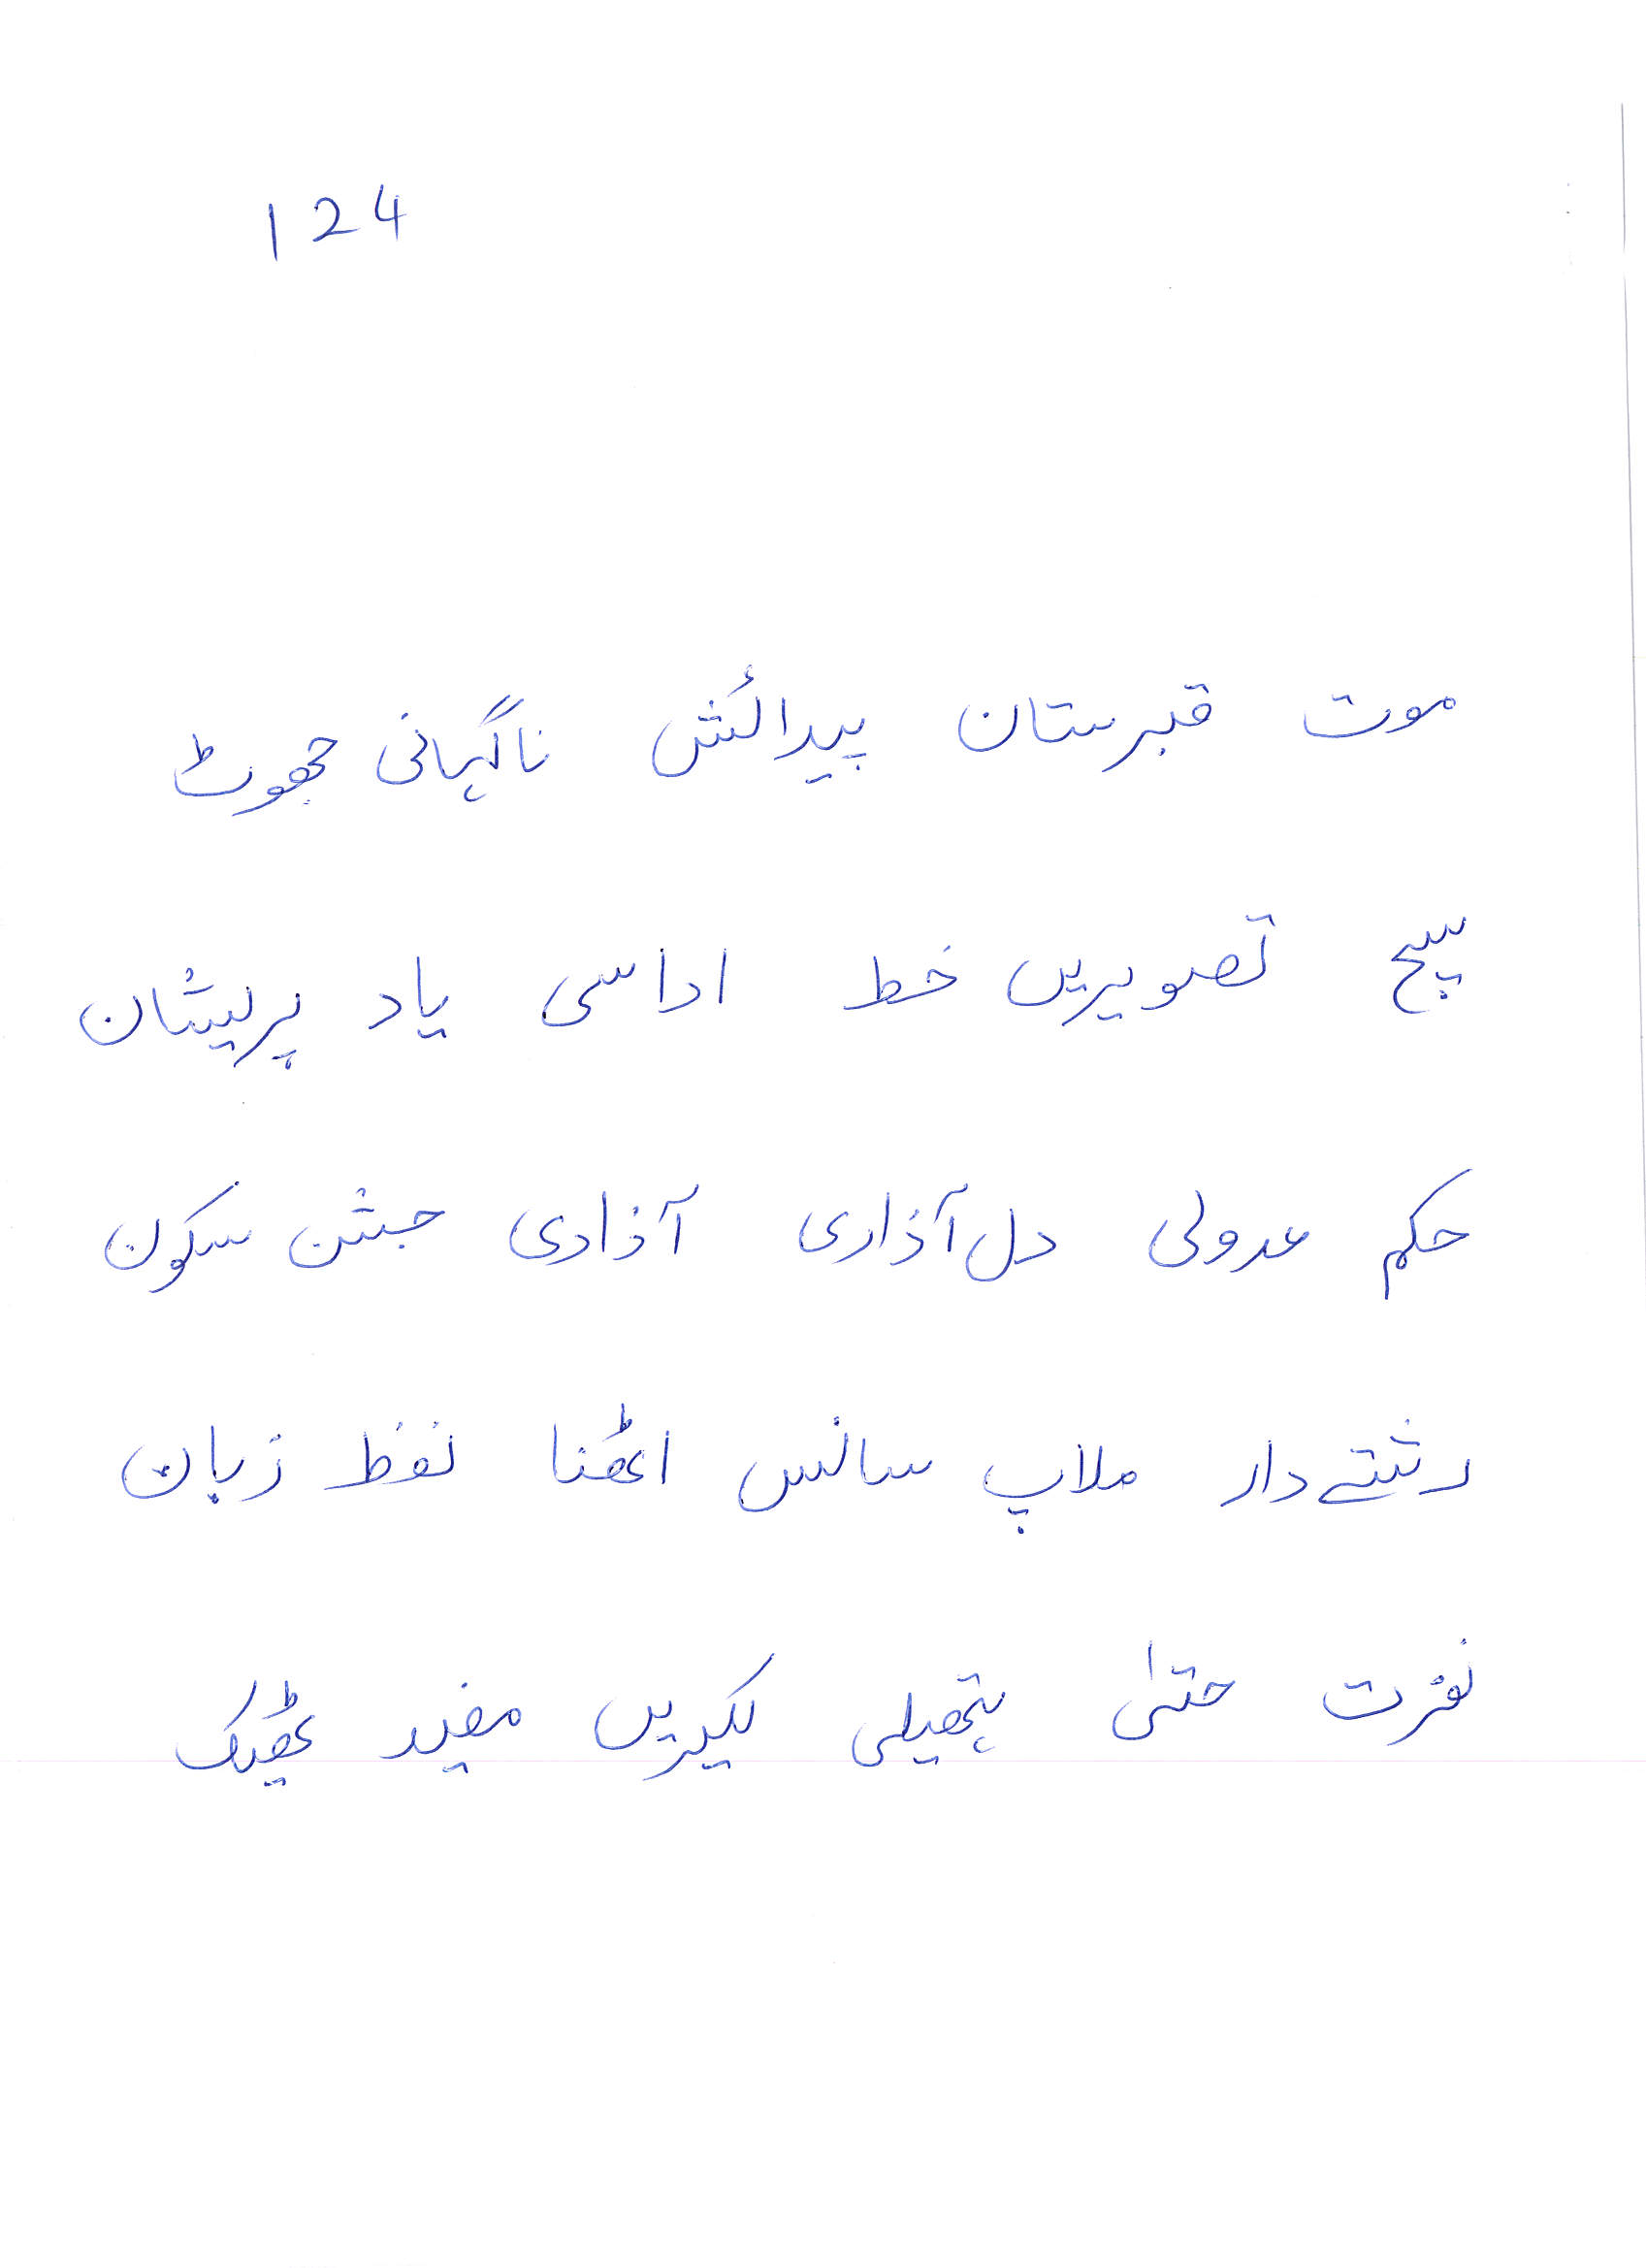 124
موت قبرستان پیدائش ناگہانی جھوٹ
سچ تصویریں خط اداسی یاد پریشان
حکم عدولی دل آذاری آذادی جشن سکون
رشتے دار ملاپ سانس اٹھنا لفظ زبان
نفرت حتیٰ ہتھیلی لکیریں مفید ٹھیک